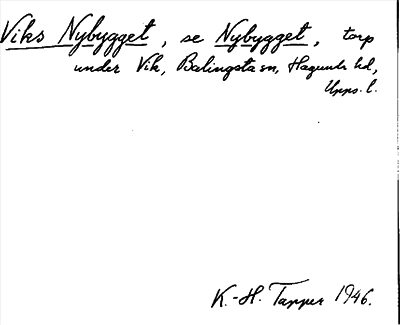 Viks Nybygget, se Nybygget, torp
under Vik, Balingsta sn, Hagunda hd,
Upps. l.
K.-H. Tapper 1946.